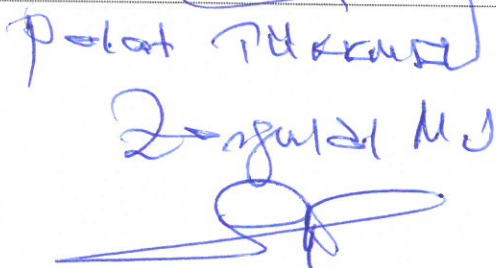 Polat Türkmen
Zonguldak M.V